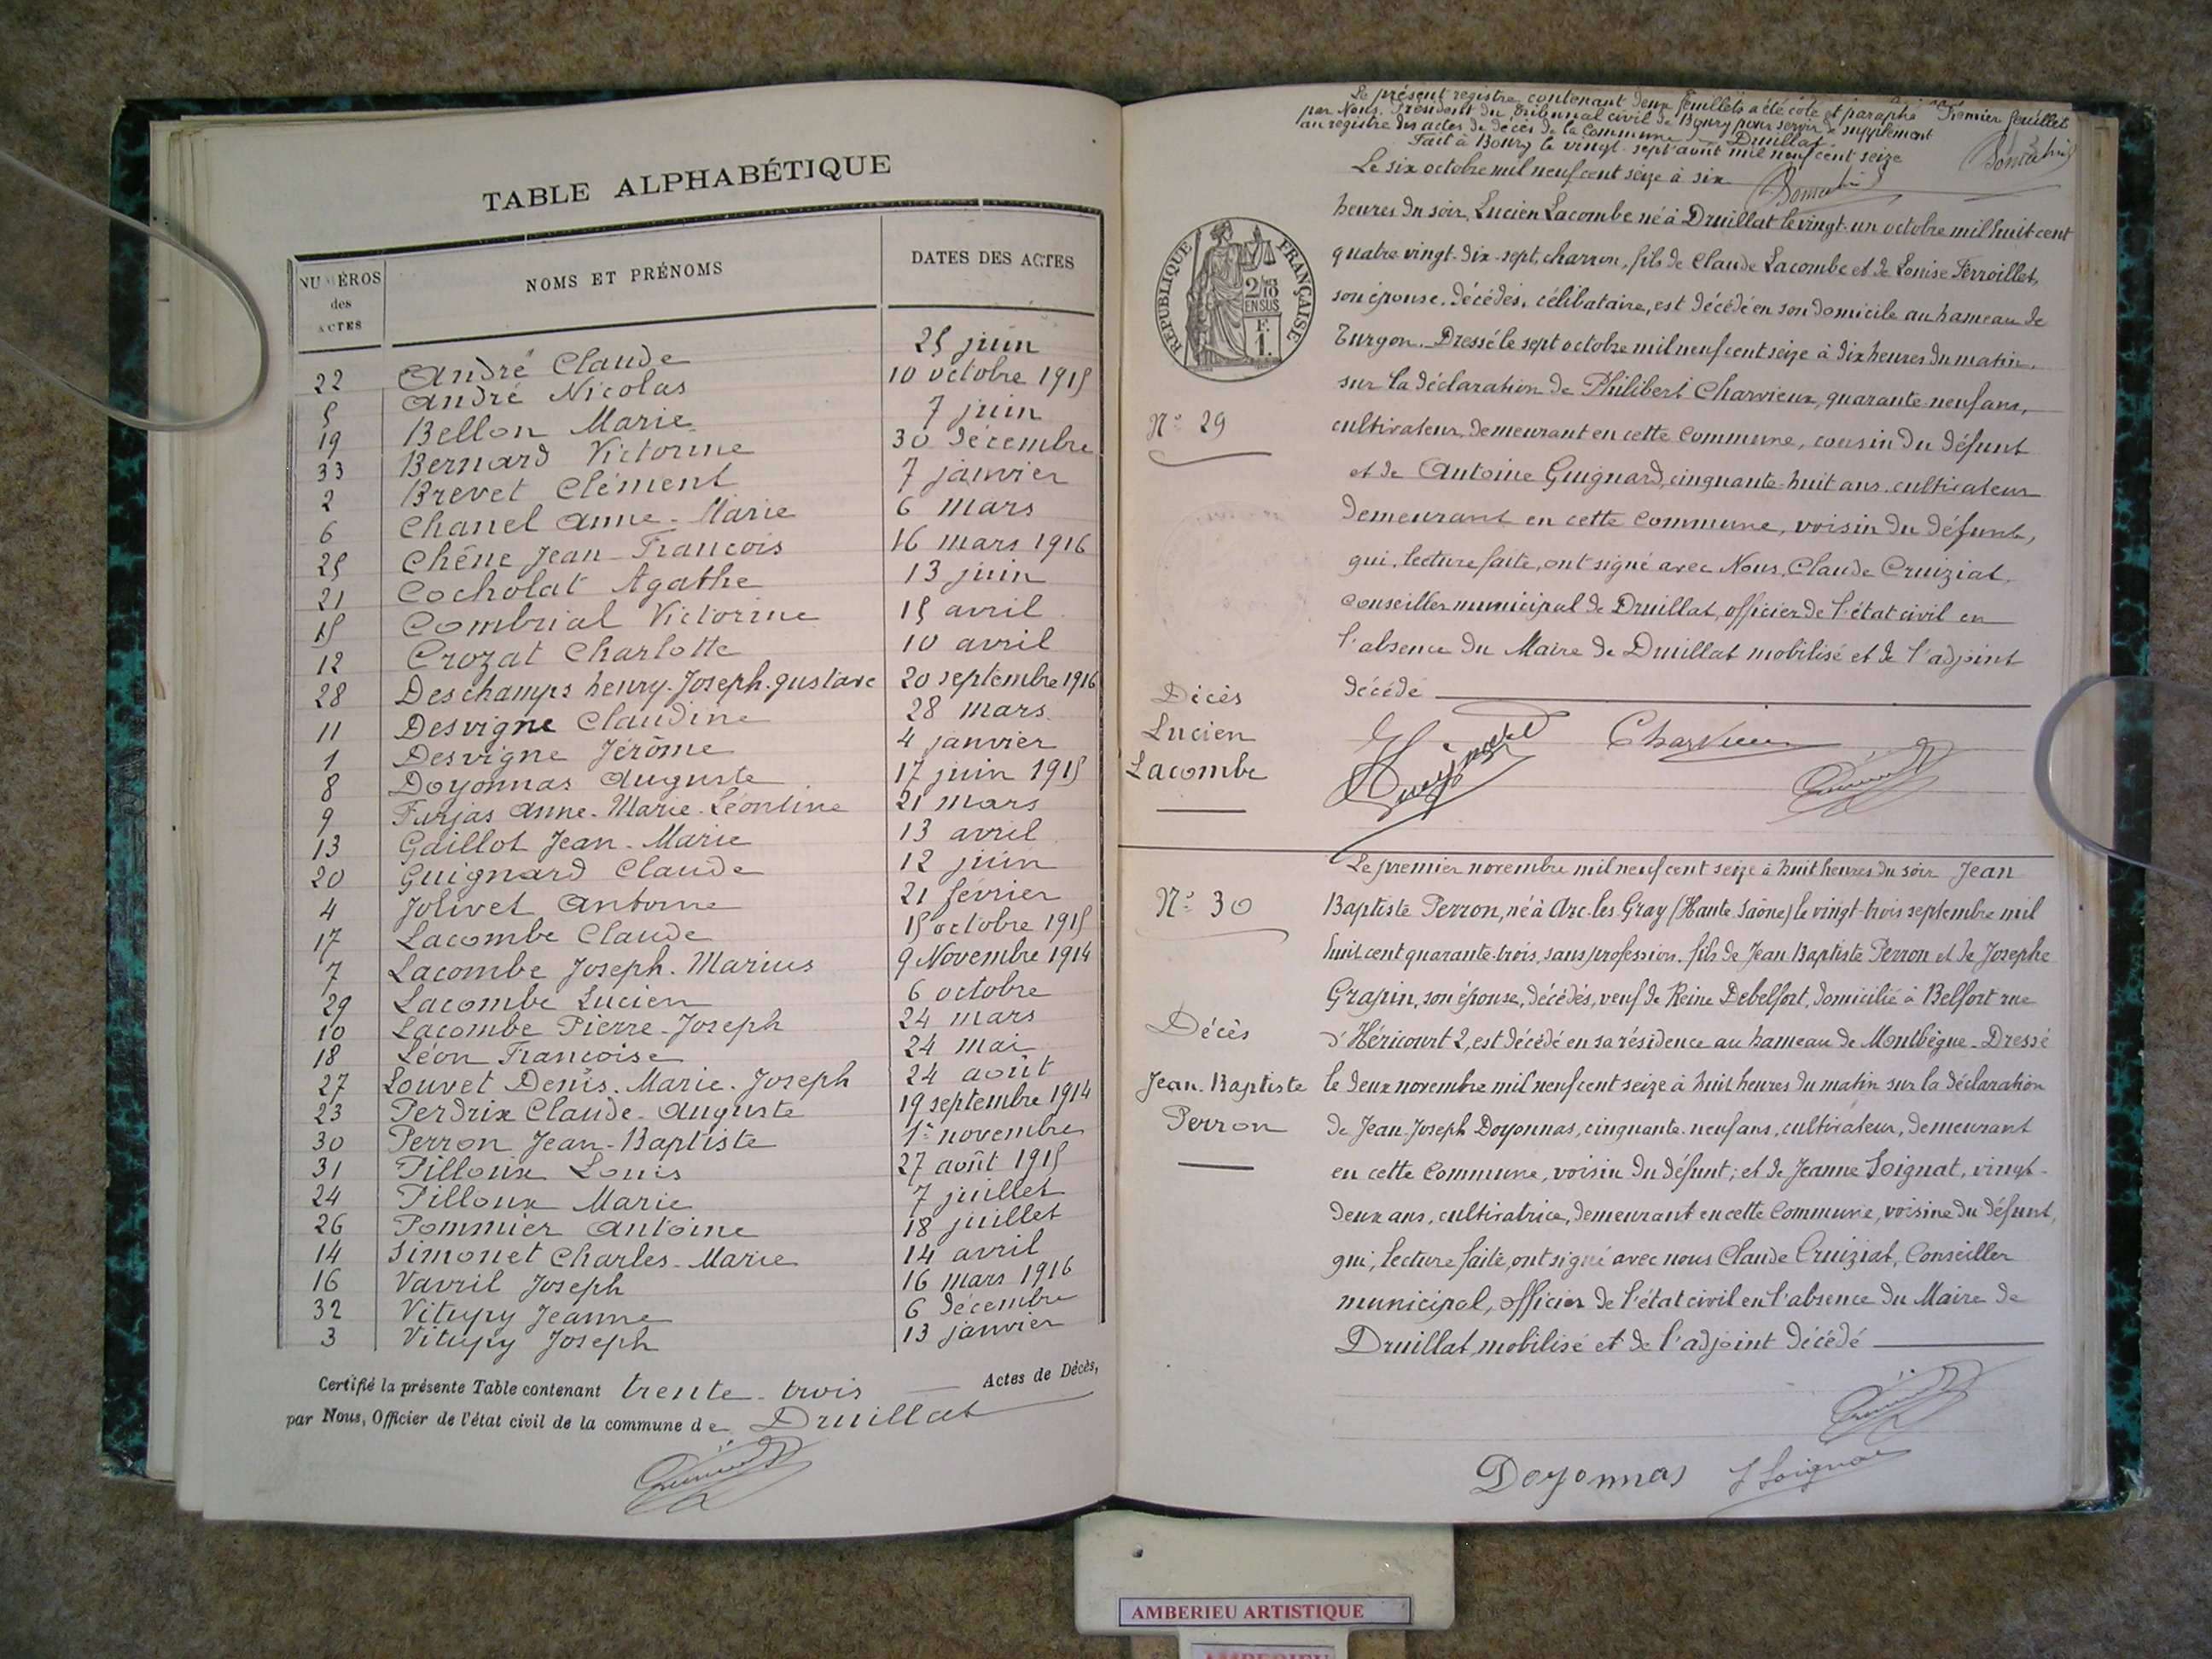 TABLE ALPHABÉTIQUE
NUMÉROS des ACTES NOMS ET PRÉNOMS DATES DES ACTES
22 André Claude 25 juin
5 André Nicolas 10 octobre 1915
19 Bellon Marie 7 juin
33 Bernard Victorine 30 décembre
2 Brevet Clément 7 janvier
6 Chanel Anne-Marie 6 mars
25 Chêne Jean-François 16 mars 1916
21 Cocholat Agathe 13 juin
15 Combrial Victorine 15 avril
12 Crozat Charlotte 10 avril
28 Deschamps henry-Joseph-gustave 20 septembre 1916
11 Desvigne Claudine 28 mars
1 Desvigne Jérôme 4 janvier
8 Doyonnas Auguste 17 juin 1915
9 Furjas Anne-Marie-Léontine 21 mars
13 Gaillot Jean-Marie 13 avril
20 Guignard Claude 12 juin
4 Jolivet Antoine 21 février
17 Lacombe Claude 15 octobre 1915
7 Lacombe Joseph-Marius 9 Novembre 1914
29 Lacombe Lucien 6 octobre
10 Lacombe Pierre-Joseph 24 mars
18 Léon Françoise 24 mai
27 Louvet Denis-Marie-Joseph 24 août
23 Perdrix Claude-Auguste 19 septembre 1914
30 Perron Jean-Baptiste 1er novembre
31 Pilloux Louis 27 août 1915
24 Pilloux Marie 7 juillet
26 Pommier Antoine 18 juillet
14 Simonet Charles-Marie 14 avril
16 Vavril Joseph 16 mars 1916
32 Vitupy Jeanne 6 décembre
3 Vitupy Joseph 13 janvier
Certifié la présente Table contenant trente-trois Actes de Décès,
par Nous, Officier de l'état civil de la commune de Druillat
Le présent registre contenant deux feuillets a été coté et paraphé Premier feuillet
par Nous, Président du Tribunal civil de Bourg pour servir de supplément
au registre des actes de décès de la Commune Druillat.
Fait à Bourg le vingt-sept août mil neuf cent seize
RÉPUBLIQUE FRANÇAISE
2/10 EN SUS
F. 1.
N° 29
Décès
Lucien
Lacombe
Le six octobre mil neuf cent seize à six
heures du soir, Lucien Lacombe né à Druillat le vingt-un octobre mil huit cent
quatre vingt-dix-sept, charron, fils de Claude Lacombe et de Louise Ferroillet,
son épouse, décédés, célibataire, est décédé en son domicile au hameau de
Turgon. Dressé le sept octobre mil neuf cent seize à dix heures du matin,
sur la déclaration de Philibert Charvieux, quarante-neuf ans,
cultivateur, demeurant en cette Commune, cousin du défunt
et de Antoine Guignard, cinquante-huit ans, cultivateur
demeurant en cette Commune, voisin du défunt,
qui, lecture faite, ont signé avec Nous, Claude Cruiziat,
Conseiller municipal de Druillat, officier de l'état civil en
l'absence du Maire de Druillat mobilisé et de l'adjoint
décédé
Guignard Charvieux
N° 30
Décès
Jean-Baptiste
Perron
Le premier novembre mil neuf cent seize à huit heures du soir Jean
Baptiste Perron, né à Arc-les-Gray (Haute-Saône) le vingt-trois septembre mil
huit cent quarante-trois, sans profession, fils de Jean Baptiste Perron et de Josephe
Grapin, son épouse, décédés, veuf de Reine Debelfort, domicilié à Belfort rue
d'Héricourt 2, est décédé en sa résidence au hameau de Montbègue. Dressé
le deux novembre mil neuf cent seize à huit heures du matin sur la déclaration
de Jean-Joseph Doyonnas, cinquante-neuf ans, cultivateur, demeurant
en cette Commune, voisin du défunt; et de Jeanne Soignat, vingt-
deux ans, cultivatrice, demeurant en cette Commune, voisine du défunt,
qui, lecture faite, ont signé avec nous Claude Cruiziat, Conseiller
municipal, officier de l'état civil en l'absence du Maire de
Druillat, mobilisé et de l'adjoint décédé
Doyonnas J Soignat
AMBERIEU ARTISTIQUE
AMBERIEU